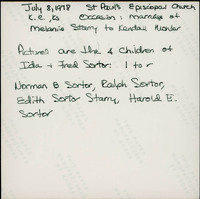 July 8, 1978 St Paul's Episcopal Church
K.C., Ks Occasion: marriage of
Melanie Stamy to Kendall
Pictures are the 4 children of
Ida + Fred Sortor: l to r
Norman B Sortor, Ralph Sortor,
Edith Sortor Stamy, Harold E.
Sortor